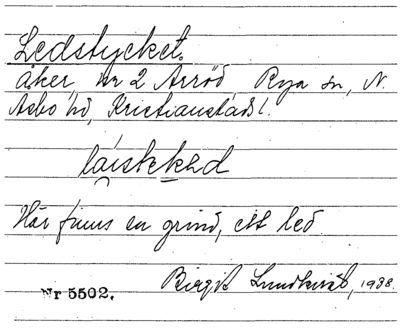 Ledstycket.
åker, nr 2 Arröd Rya sn, N.
Åsbo hd, Kristianstads l.
Här finns en grind, ett led
Birgit Lundkvist, 1938.
Nr 5502.